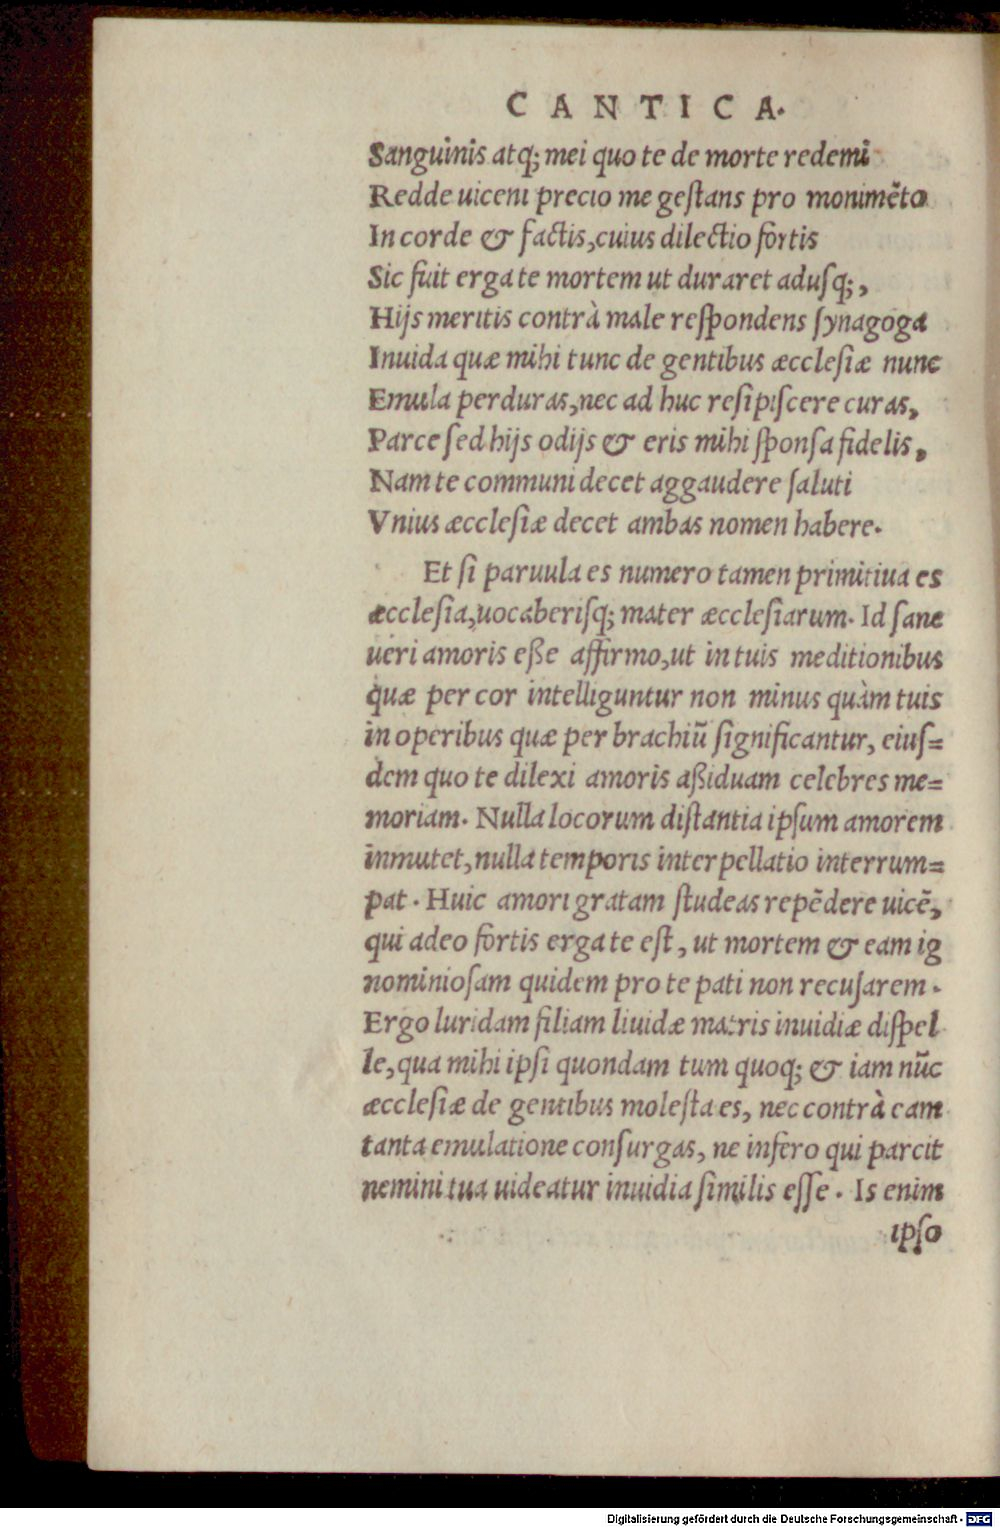 CANTICA.
Sanguinis atq; mei quo te de morte redemi
Redde uicem precio me geſtans pro monimẽto
In corde & factis, cuius dilectio fortis
Sic fuit erga te mortem ut duraret aduſq;,
Hijs meritis contrà male reſpondens ſynagoga
Inuida quæ mihi tunc de gentibus æccleſiæ nunc
Emula perduras, nec ad huc reſipiſcere curas,
Parce ſed hijs odijs & eris mihi ſponſa fidelis,
Nam te communi decet aggaudere ſaluti
Vnius æccleſiæ decet ambas nomen habere.
Et ſi paruula es numero tamen primitiua es
æccleſia, uocaberiſq; mater æccleſiarum. Id ſane
ueri amoris eße affirmo, ut in tuis meditionibus
quæ per cor intelliguntur non minus quàm tuis
in operibus quæ per brachiũ ſignificantur, eiuſ=
dem quo te dilexi amoris aßiduam celebres me=
moriam. Nulla locorum diſtantia ipſum amorem
inmutet, nulla temporis interpellatio interrum=
pat. Huic amori gratam ſtudeas repẽdere uicẽ,
qui adeo fortis erga te eſt, ut mortem & eam ig
nominioſam quidem pro te pati non recuſarem.
Ergo luridam filiam liuidæ matris inuidiæ diſpel
le, qua mihi ipſi quondam tum quoq; & iam nũc
æccleſiæ de gentibus moleſta es, nec contrà eam
tanta emulatione conſurgas, ne infero qui parcit
nemini tua uideatur inuidia ſimilis eſſe. Is enim
ipſo
Digitalisierung gefördert durch die Deutsche Forschungsgemeinschaft - DFG